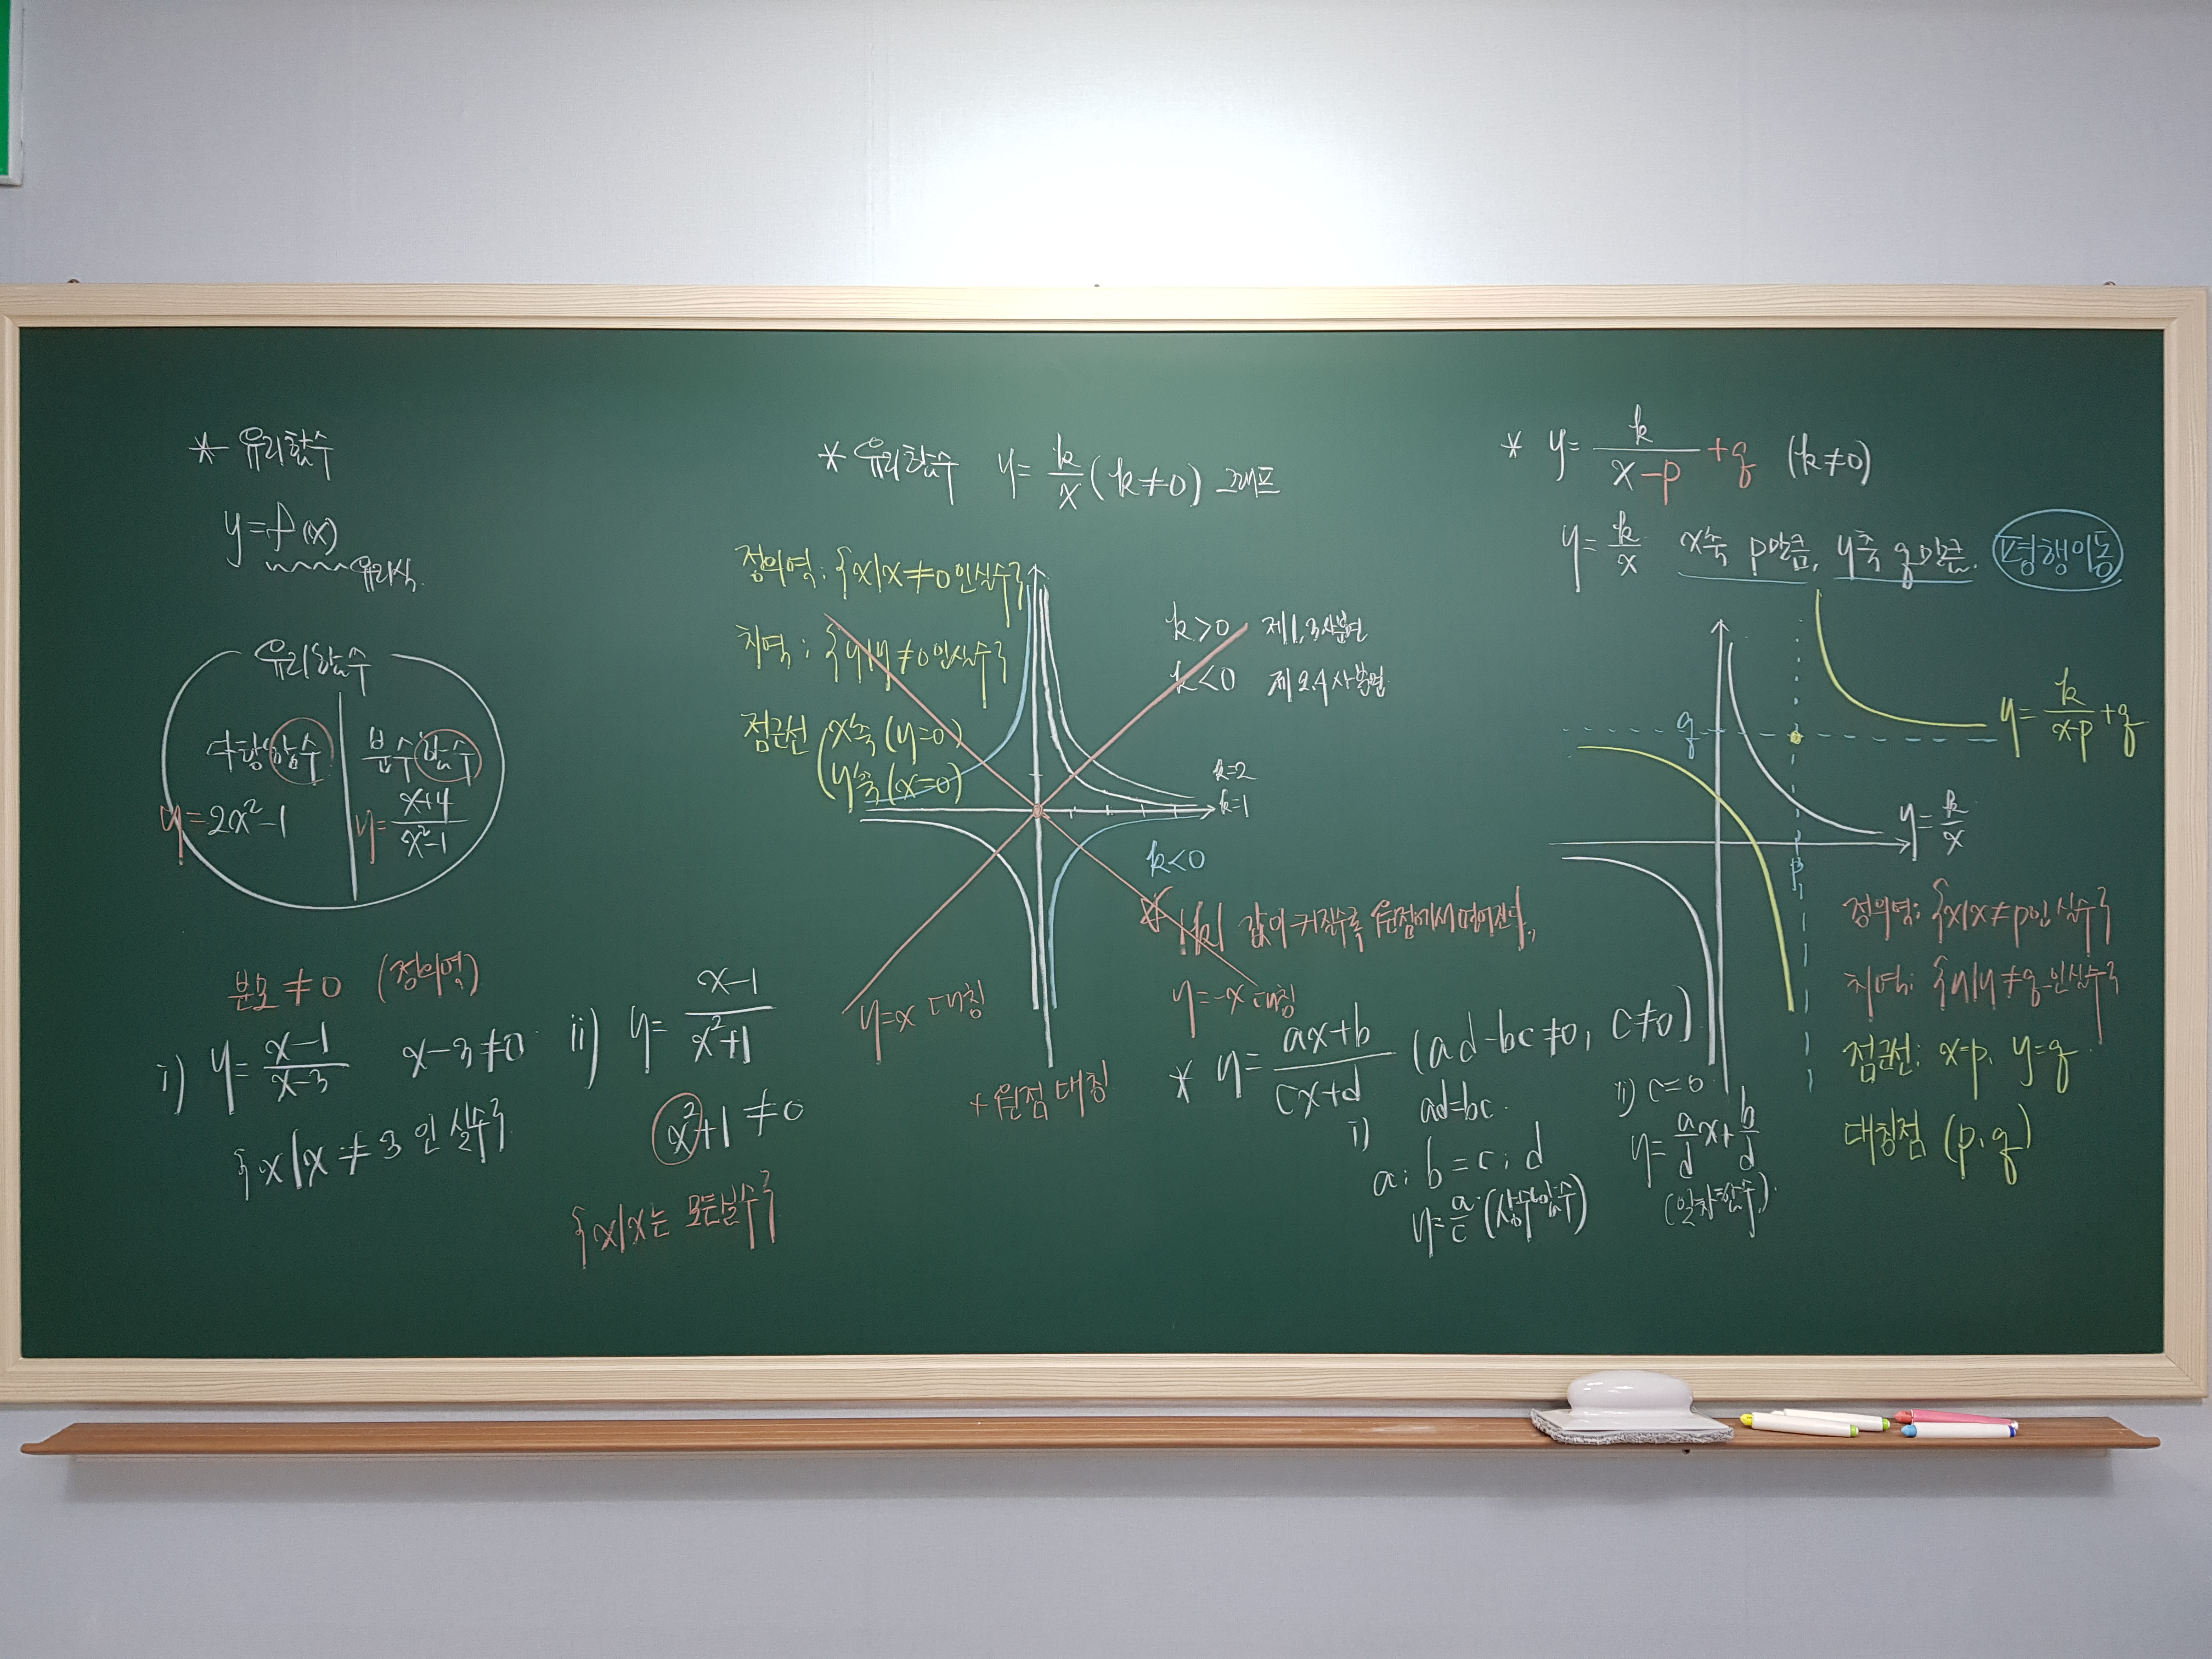 * 유리함수
y=f(x)
유리식.
유리함수
다항함수
분수함수
y=2x²-1
y=\frac{x+4}{x²-1}
분모≠0 (정의역)
i) y=\frac{x-1}{x-3} x-3≠0
{x|x≠3인 실수}
ii) y=\frac{x-1}{x²+1}
x²+1≠0
{x|x는 모든실수}
* 유리함수 y=\frac{k}{x}(k≠0) 그래프
정의역: {x|x≠0인실수}
치역: {y|y≠0인실수}
점근선 (x축(y=0)
y축(x=0)
k>0 제1,3사분면
k<0 제2,4사분면
k=2
k=1
k<0
☆ |k| 값이 커질수록 원점에서 멀어진다.
y=x 대칭
y=-x 대칭
+ 원점 대칭
* y=\frac{ax+b}{cx+d} (ad-bc≠0, c≠0)
i) ad=bc.
a:b=c:d
y=\frac{a}{c}(상수함수)
ii) c=0
y=\frac{a}{d}x+\frac{b}{d}
(일차함수).
* y=\frac{k}{x-p}+q (k≠0)
y=\frac{k}{x} x축 p만큼, y축 q만큼. 평행이동
q
y=\frac{k}{x-p}+q
y=\frac{k}{x}
p
정의역: {x|x≠p인 실수}
치역: {y|y≠q인실수}
점근선: x=p, y=q
대칭점 (p, q)